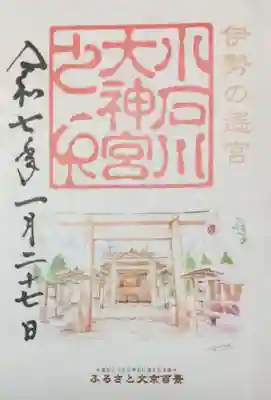 伊勢の遥宮
小石川
大神宮
之印
令和七年一月二十七日
ふるさと文京百景